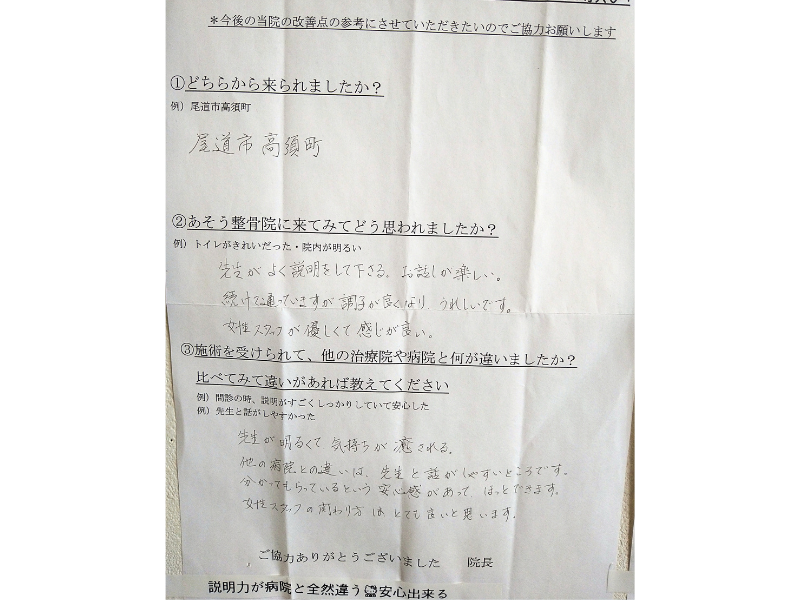 ＊今後の当院の改善点の参考にさせていただきたいのでご協力お願いします
①どちらから来られましたか？
例）尾道市高須町
尾道市高須町
②あそう整骨院に来てみてどう思われましたか？
例）トイレがきれいだった・院内が明るい
先生がよく説明をして下さる。お話しが楽しい。
続けて通っていますが調子が良くなり、うれしいです。
女性スタッフが優しくて感じが良い。
③施術を受けられて、他の治療院や病院と何が違いましたか？
比べてみて違いがあれば教えてください
例）問診の時、説明がすごくしっかりしていて安心した
例）先生と話がしやすかった
先生が明るくて気持ちが癒される。
他の病院との違いは、先生と話がしやすいところです。
分かってもらっているという安心感があって、ほっとできます。
女性スタッフの関わり方はとても良いと思います。
ご協力ありがとうございました 院長
説明力が病院と全然違う安心出来る